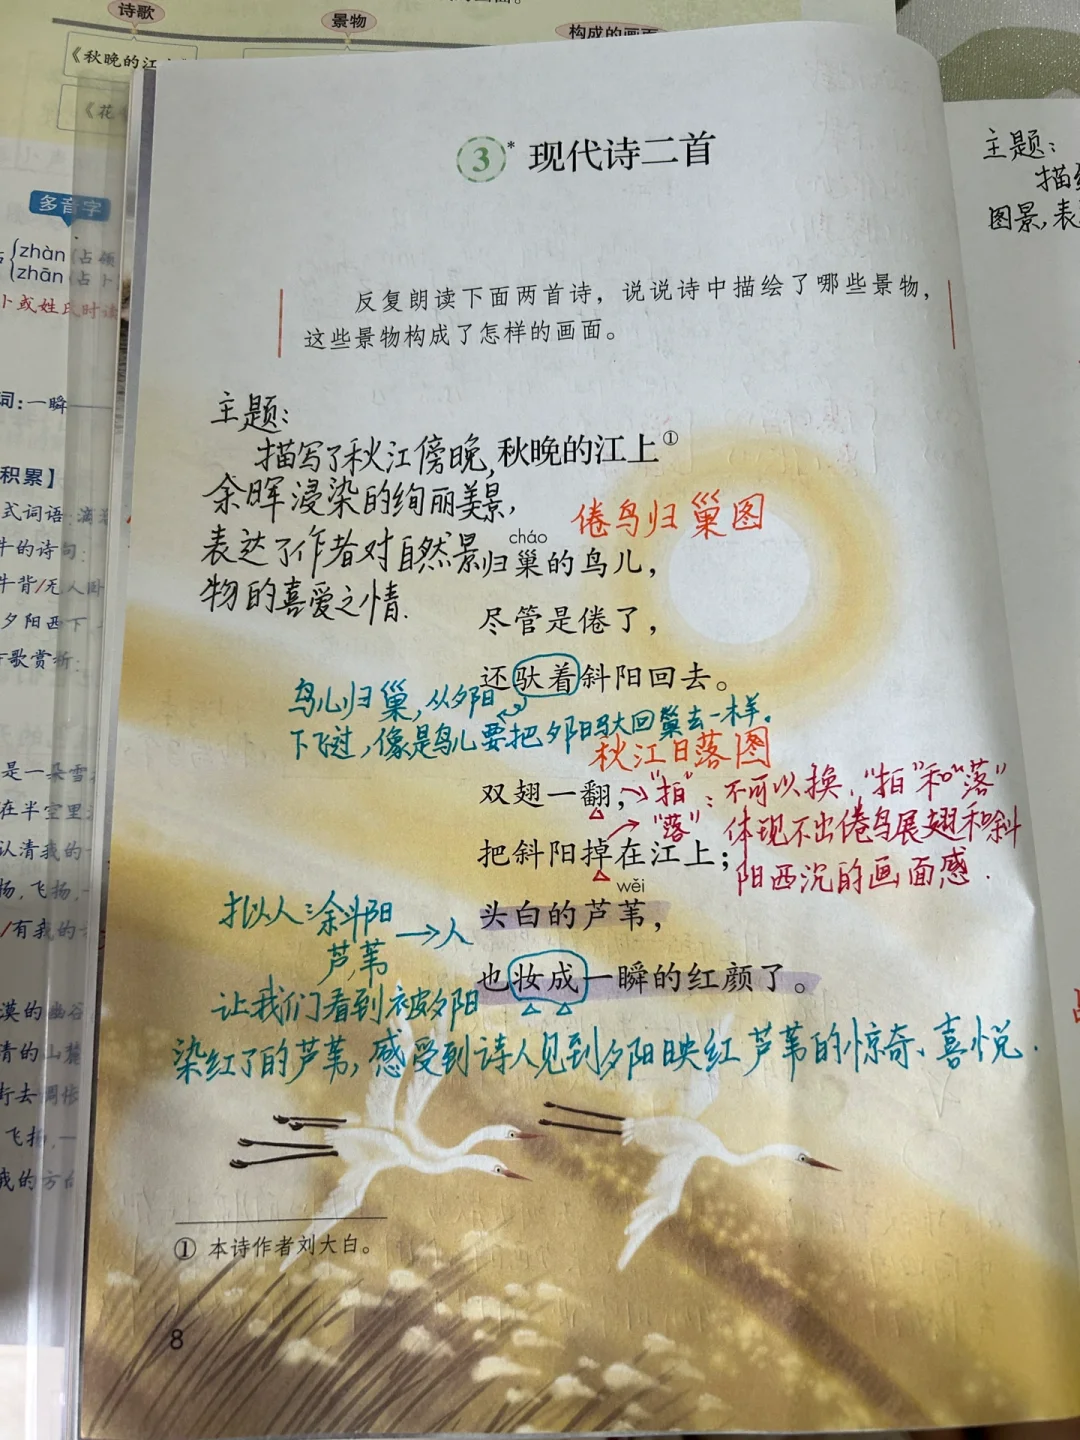 诗歌
景物
构成的画面
《秋晚的江
《花
多音字
zhàn(占领
zhān(占卜
卜或姓氏时读
词:一瞬
积累】
式词语:满
牛的诗句:
牛背/无人卧
夕阳西下
歌赏析:
是一朵雪
在半空里
认清我的
扬,飞扬,
/有我的
漠的幽谷
清的山麓
街去惆怅
飞扬,一
我的方向
3* 现代诗二首
反复朗读下面两首诗,说说诗中描绘了哪些景物,
这些景物构成了怎样的画面。
主题:
描写了秋江傍晚,
余晖浸染的绚丽美景,
表达了作者对自然景
物的喜爱之情.
秋晚的江上①
倦鸟归巢图
cháo
归巢的鸟儿,
尽管是倦了,
还驮着斜阳回去。
鸟儿归巢,从夕阳
下飞过,像是鸟儿要把夕阳驮回巢去一样。
秋江日落图
双翅一翻,
把斜阳掉在江上;
"拍":不可以换,"拍"和"落"
"落" 体现不出倦鸟展翅和斜
阳西沉的画面感.
wěi
头白的芦苇,
也妆成一瞬的红颜了。
拟人:斜阳
芦苇→人
让我们看到被夕阳
染红了的芦苇,感受到诗人见到夕阳映红芦苇的惊奇、喜悦.
① 本诗作者刘大白。
8
主题:
描
图景,表